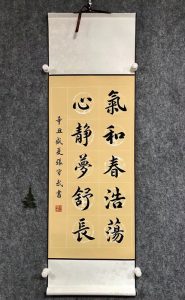 氣和春浩蕩
心靜夢舒長
辛丑歲夏張守武書